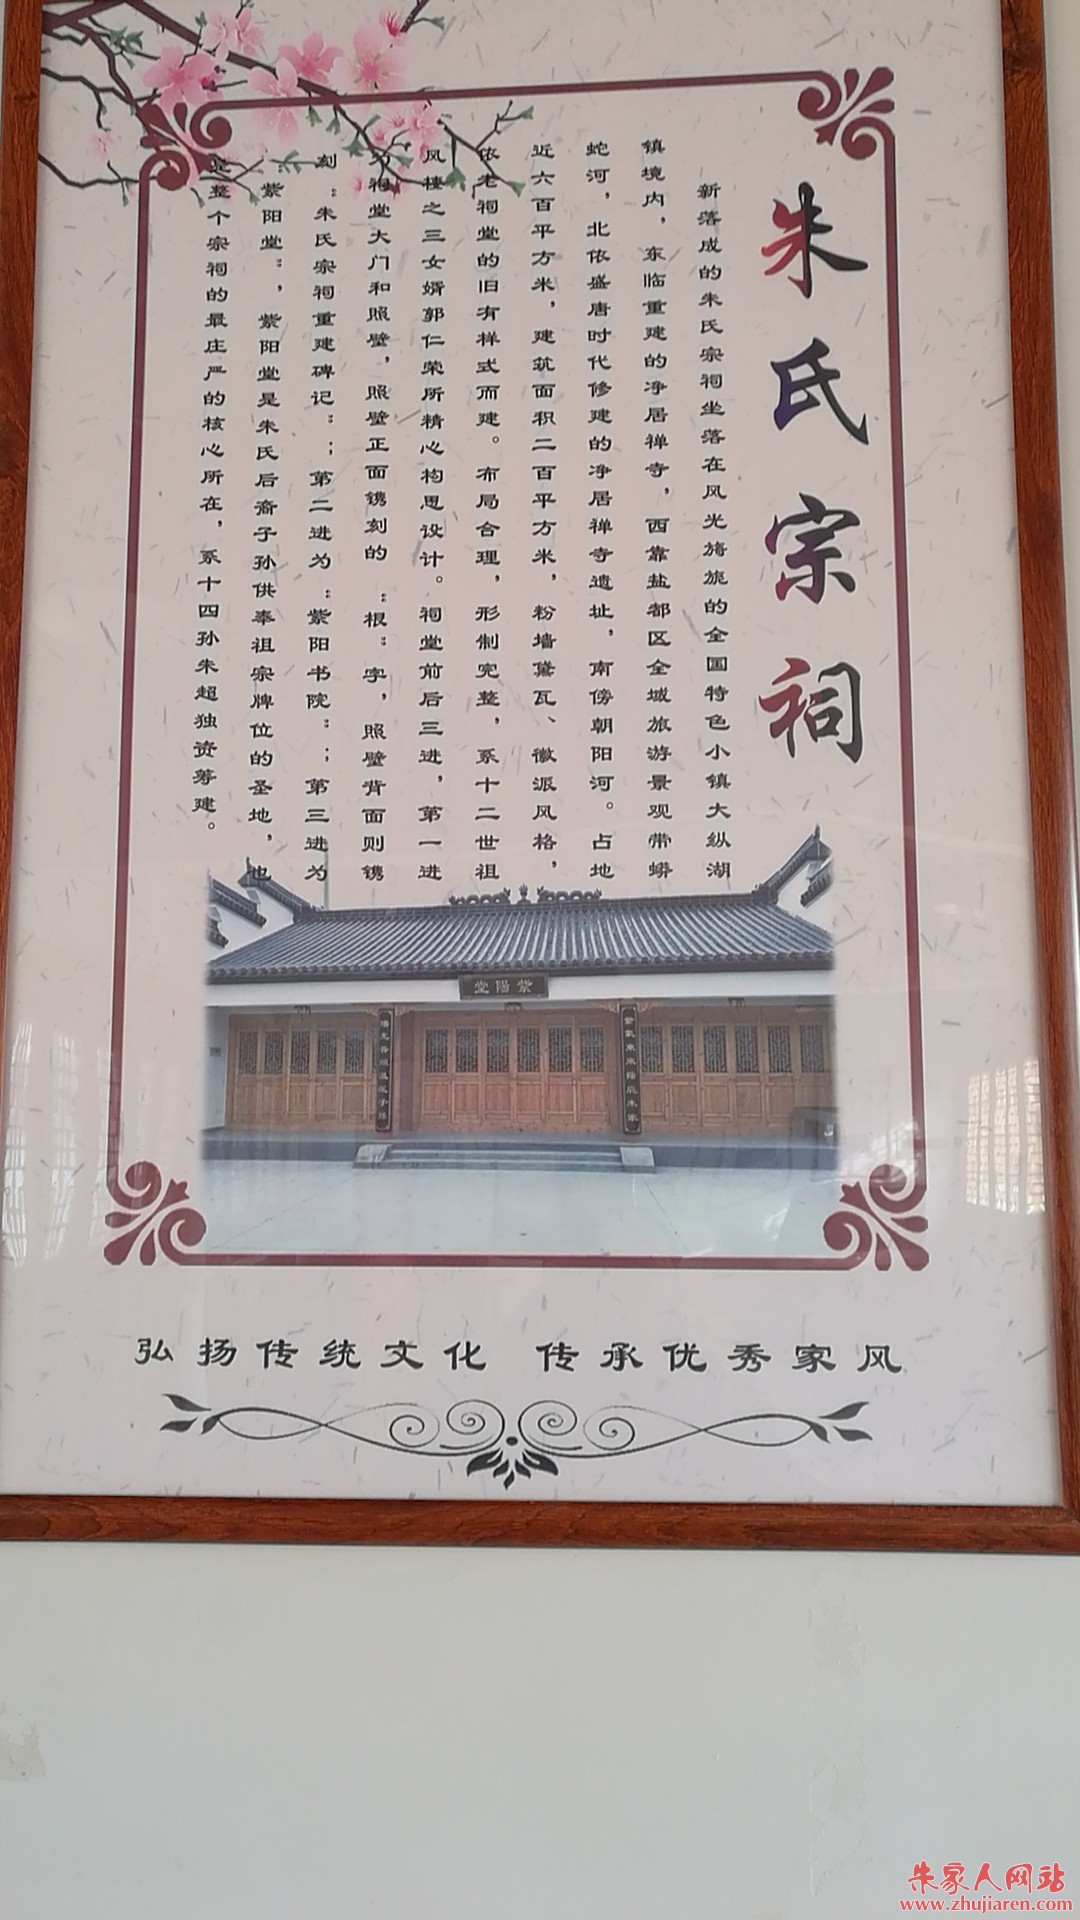 朱氏宗祠
新落成的朱氏宗祠坐落在风光旖旎的全国特色小镇大纵湖
镇境内，东临重建的净居禅寺，西靠盐都区全域旅游景观带蟒
蛇河，北依盛唐时代修建的净居禅寺遗址，南傍朝阳河。占地
近六百平方米，建筑面积二百平方米，粉墙黛瓦、徽派风格，
依老祠堂的旧有样式而建。布局合理，形制完整，系十二世祖
凤楼之三女婿郭仁荣所精心构思设计。祠堂前后三进，第一进
为祠堂大门和照壁，照壁正面镌刻的“根”字，照壁背面则镌
刻“朱氏宗祠重建碑记”；第二进为“紫阳书院”；第三进为
“紫阳堂”，紫阳堂是朱氏后裔子孙供奉祖宗牌位的圣地，也
是整个宗祠的最庄严的核心所在，系十四孙朱超独资筹建。
堂陽紫
紫氣東來
弘扬传统文化 传承优秀家风
朱家人网站
www.zhujiaren.com